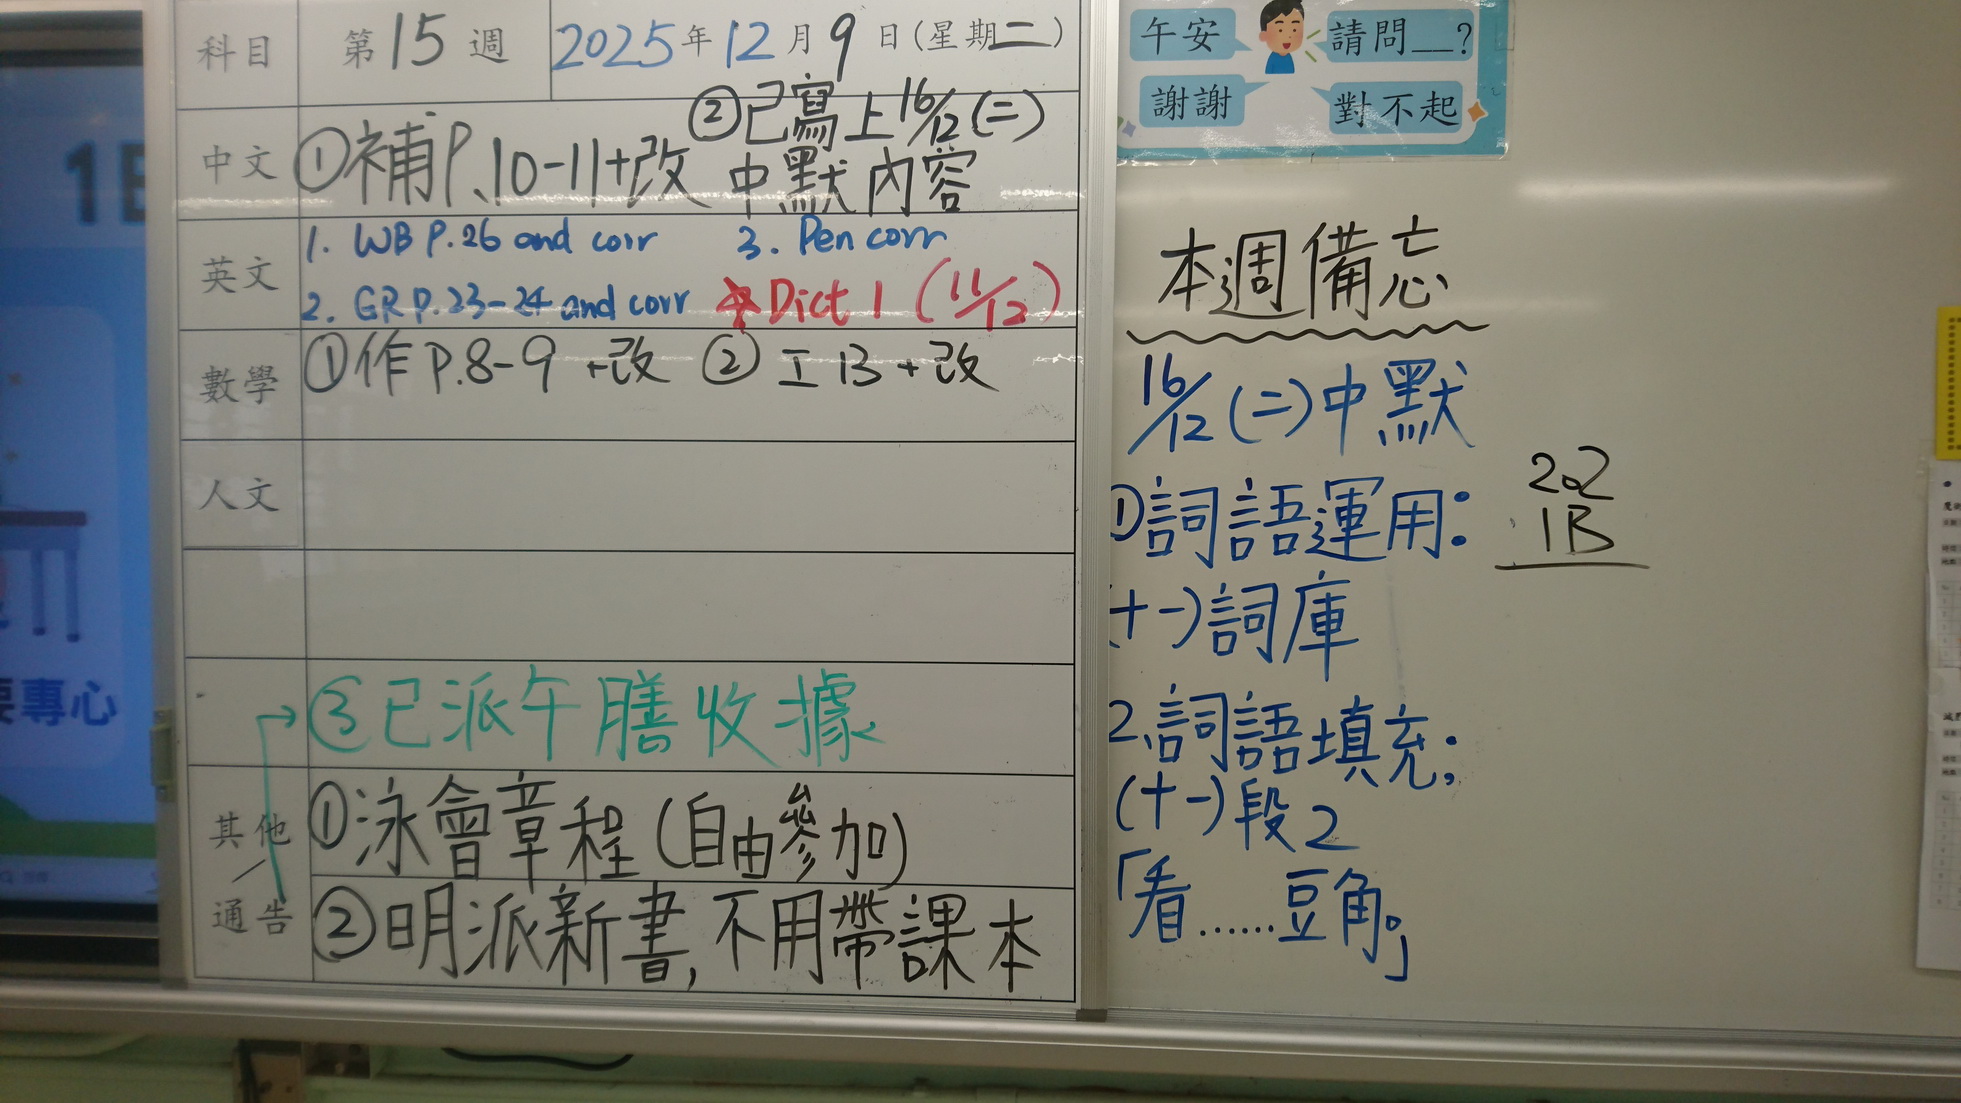 科目 第15週 2025年12月9日(星期二)
中文 ①補P.10-11+改 ②已寫上16/12(二)
中默內容
英文 1. WB P.26 and corr 3. Pen corr
2. GR P.23-24 and corr ★Dict 1 (11/12)
數學 ①作P.8-9 +改 ② 工13+改
人文
③已派午膳收據
其他/通告 ①泳會章程(自由參加)
②明派新書,不用帶課本
午安 請問__?
謝謝 對不起
本週備忘
16/12(二)中默
①詞語運用:
(十一)詞庫
2.詞語填充:
(十一)段2
「看......豆角。」
202
1B
專心